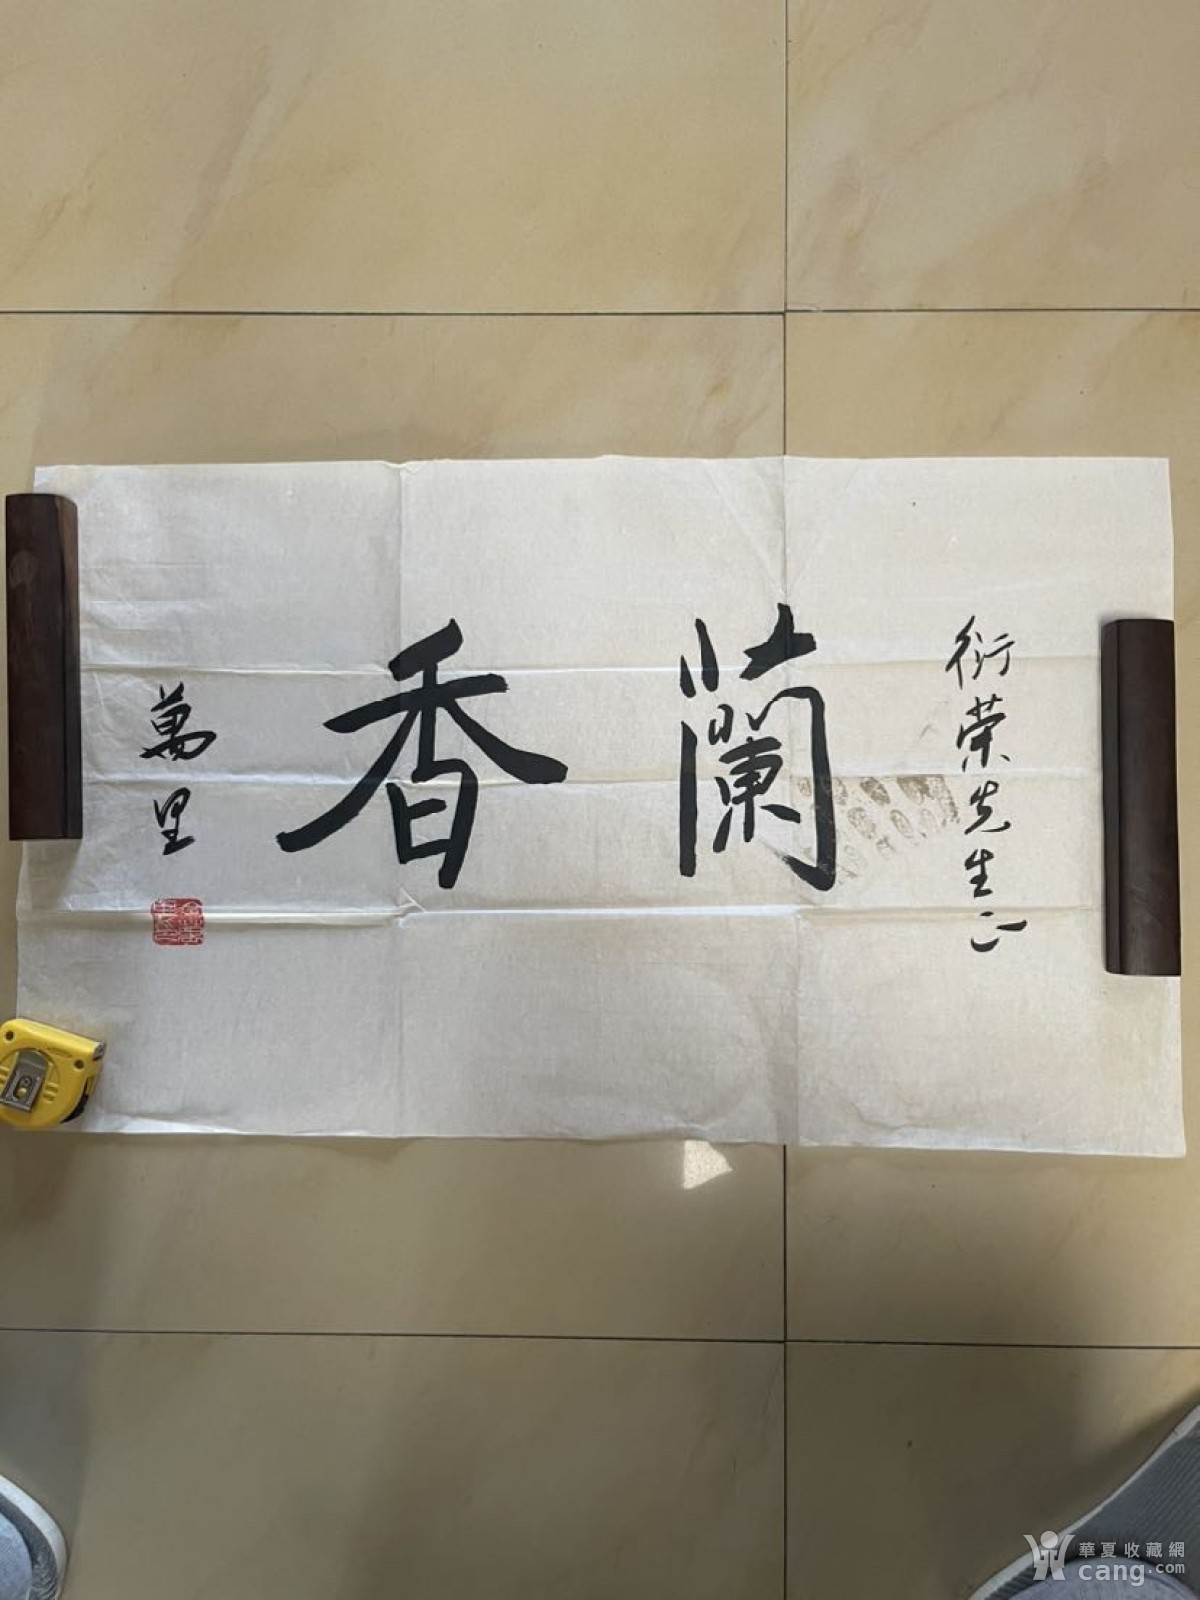 衍荣先生正
蘭香
萬里
華夏收藏網
cang.com